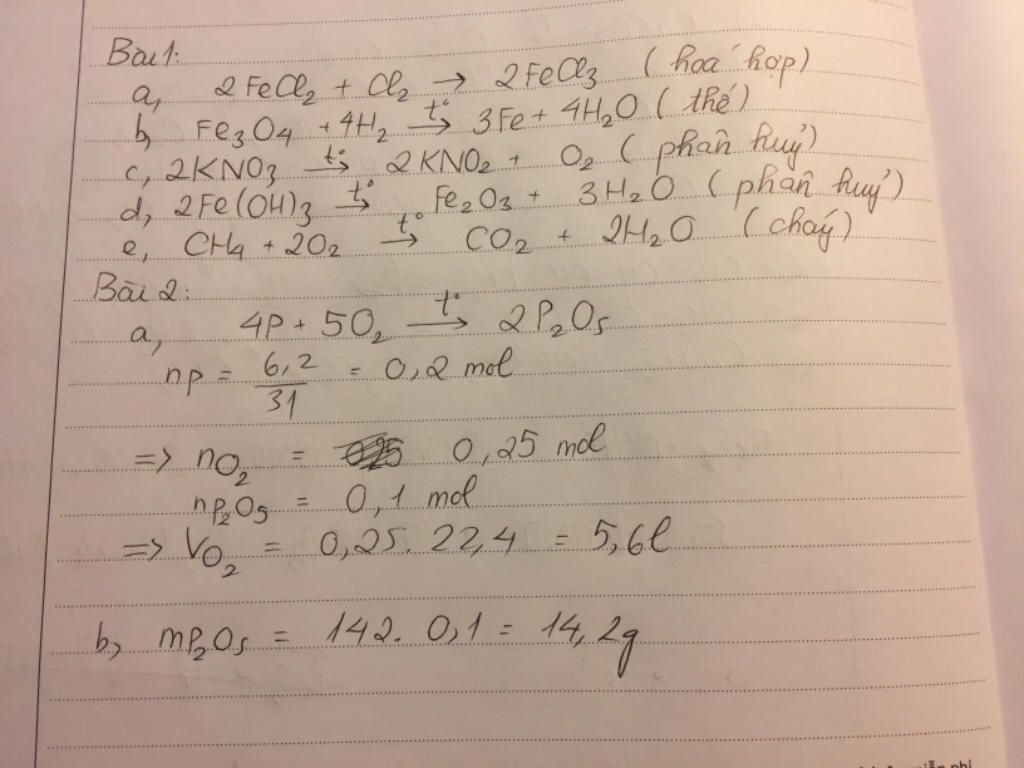 Bài 1:
a, 2FeCl₂ + Cl₂ → 2FeCl₃ (hoá hợp)
b, Fe₃O₄ + 4H₂ —t°→ 3Fe + 4H₂O (thế)
c, 2KNO₃ —t°→ 2KNO₂ + O₂ (phân huỷ)
d, 2Fe(OH)₃ —t°→ Fe₂O₃ + 3H₂O (phân huỷ)
e, CH₄ + 2O₂ —t°→ CO₂ + 2H₂O (cháy)
Bài 2:
a, 4P + 5O₂ —t°→ 2P₂O₅
nP = 6,2/31 = 0,2 mol
=> nO₂ = 0,25 mol
nP₂O₅ = 0,1 mol
=> VO₂ = 0,25. 22,4 = 5,6l
b, mP₂O₅ = 142. 0,1 = 14,2g